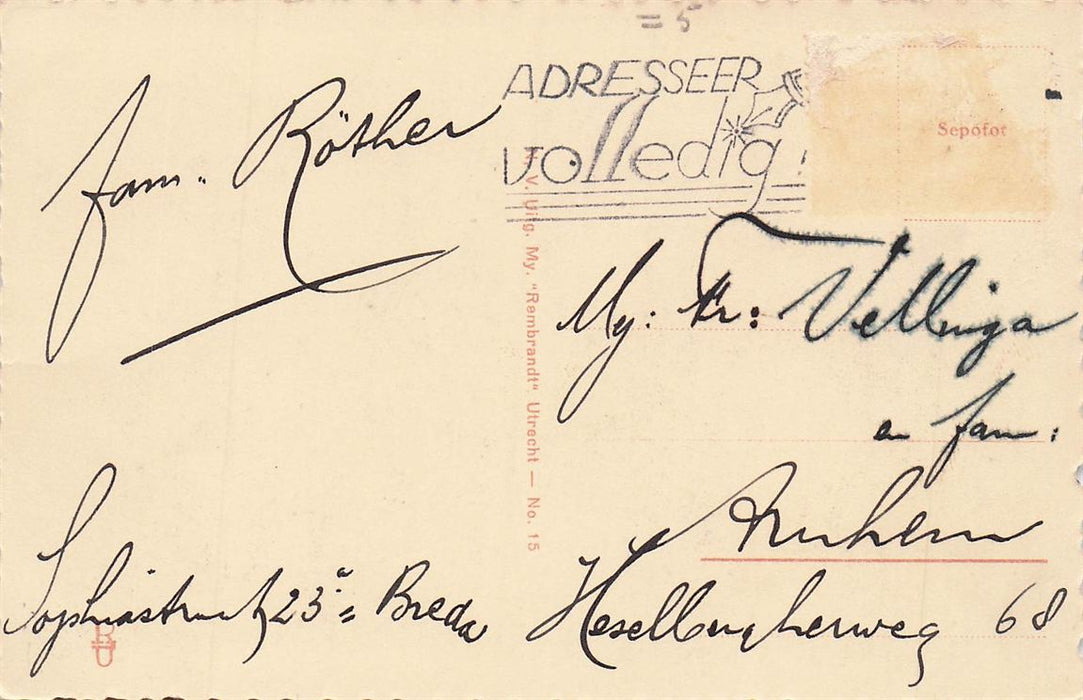 = 5
ADRESSEER
volledig!
Sepofot
fam. Röther
My: Fr: Vellinga
en fam:
Arnhem
Hesselbergherweg 68
Sophiastraat 23a = Breda
N.V. Uitg. My. "Rembrandt" Utrecht — No. 15
RU